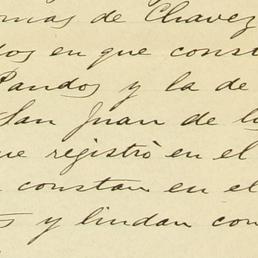 omas de Chavez
dos en que const
Pandos y la de
San Juan de lo
ue registrò en el
constan en el
s y lindan con